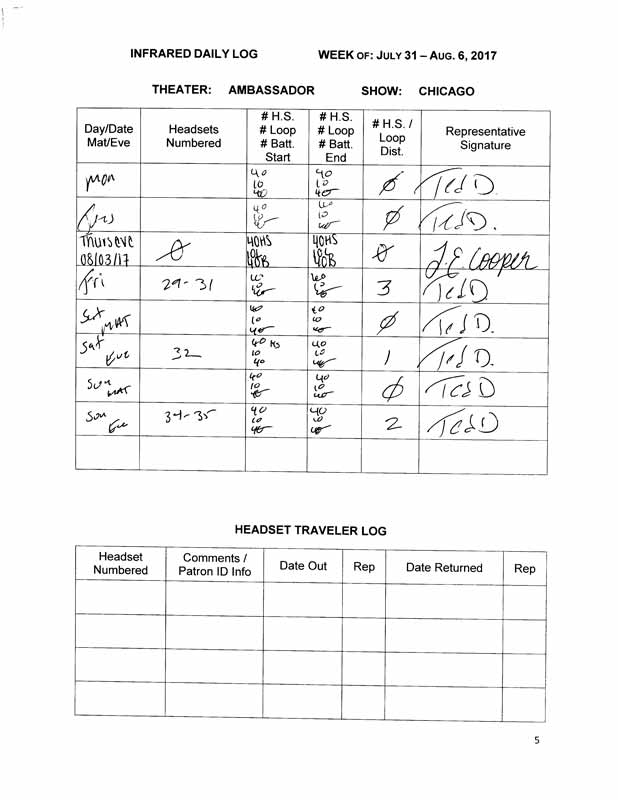 INFRARED DAILY LOG WEEK OF: JULY 31 – AUG. 6, 2017
THEATER: AMBASSADOR SHOW: CHICAGO
Day/Date Mat/Eve
Headsets Numbered
# H.S. # Loop # Batt. Start
# H.S. # Loop # Batt. End
# H.S. / Loop Dist.
Representative Signature
Mon
40 10 40
40 10 40
Ø
40 10 40
40 10 40
Ø
Thurs eve 08/03/17
Ø
40HS
40B
40HS
40B
Ø
J.E. Cooper
Fri
29-31
40 10 40
40 10 40
3
Sat MAT
40 10 40
40 10 40
Ø
Sat Eve
32
40 HS 10 40
40 10 40
1
Sun MAT
40 10 40
40 10 40
Ø
Sun Eve
34-35
40 10 40
40 10 40
2
HEADSET TRAVELER LOG
Headset Numbered
Comments / Patron ID Info
Date Out
Rep
Date Returned
Rep
5